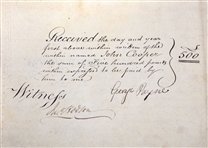 Received the day and year
first above within written of the
within named John Cooper
the sum of Five hundred pounds
within expressed to be paid by
him to me
£
500
Witness
George Payne